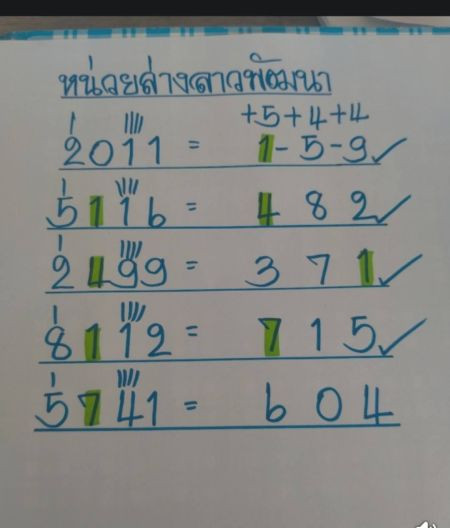 หน่วยล่างลาวพัฒนา
+5+4+4
2011 = 1-5-9✓
5116 = 4 8 2✓
2499 = 3 7 1✓
8112 = 7 1 5✓
5741 = 6 0 4